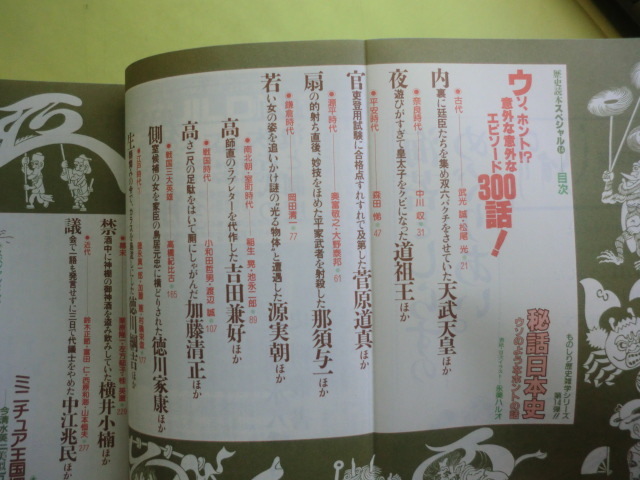 歴史読本スペシャル 目次
ウソ、ホント!?
意外な意外な
エピソード
300話!
ものしり歴史雑学シリーズ 第1弾!!
秘話日本史
ウソのようなホントの話
●古代 武光 誠・松尾 光●21
内裏に廷臣たちを集め双六バクチをさせていた天武天皇ほか
●奈良時代 中川 収●31
夜遊びがすぎて皇太子をクビになった道祖王ほか
●平安時代 森田 悌●47
官吏登用試験に合格点すれすれで及第した菅原道真ほか
●源平時代 奥富敬之・大野泰邦●61
扇の的射ち直後、妙技をほめた平家武者を射殺した那須与一ほか
●鎌倉時代 岡田清一●77
若い女の姿を追いかけ謎の“光る物体”と遭遇した源実朝ほか
●南北朝・室町時代 稲生 晃・池永二郎●89
高師直のラブレターを代作した吉田兼好ほか
●戦国時代 小和田哲男・渡辺 誠●107
高さ三尺の足駄をはいて厠にしゃがんだ加藤清正ほか
●戦国三大英雄 高橋紀比古●165
側室候補の女を家臣の鳥居元忠に横どりされた徳川家康ほか
●幕末
禁酒中に神棚の御神酒を盗み飲みしていた横井小楠ほか
●近代 鈴木正節・富田 仁・西藤和勝・山本春夫●277
議会で一言も発言せずに三日で代議士をやめた中江兆民ほか
ミニチュア王国